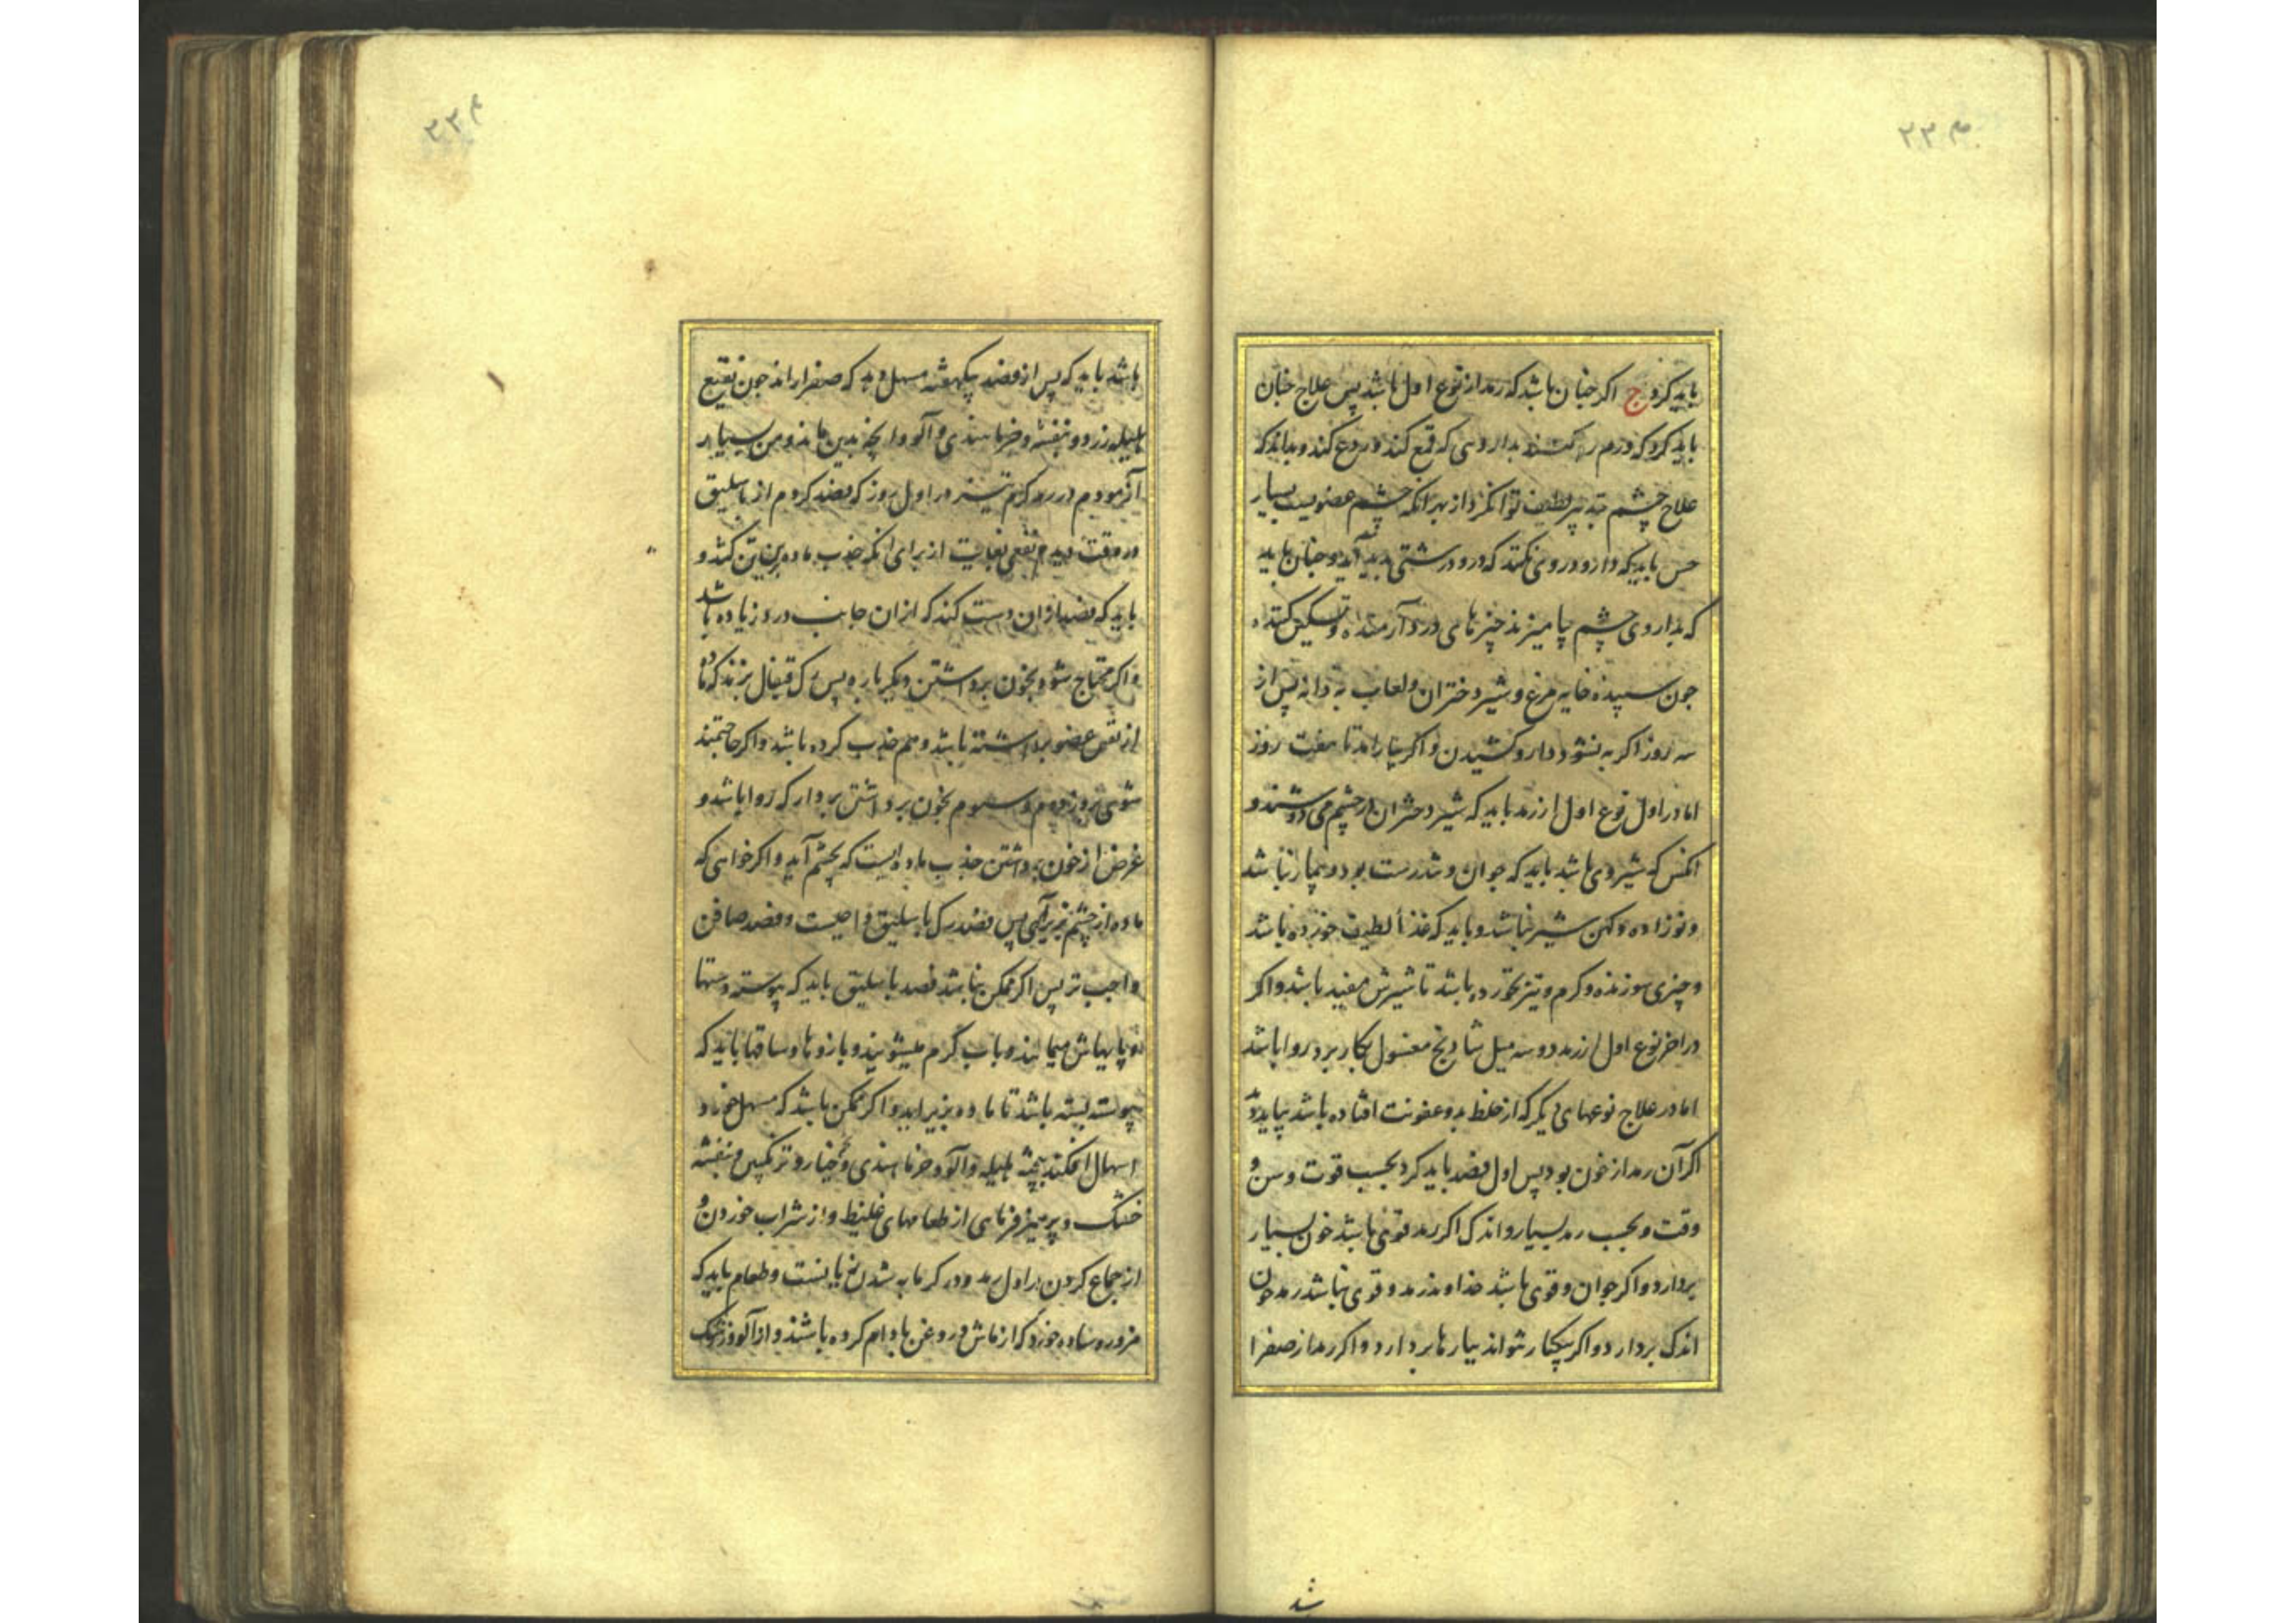 باید کرد ج اگر چنان باشد که رمد از نوع اول باشد پس علاج چنان
باید کرد که ورم بداروی که قمع کند و ردع کند و بداند که
علاج چشم تدبیر لطیف تواند کرد از بهر آنکه چشم عضویست بسیار
حس باید که دارو دروی نکنند که درو درشتی پدید آید و چنان باید
که بداروی چشم بیامیزند چیزهای درد آرمنده و تسکین کننده
چون سپیده خایه مرغ و شیر دختران و لعاب به دانه پس از
سه روز اگر به نشود دارو کشیدن و اگر نیارامد تا هفت روز
اما در اول نوع اول از رمد باید که شیر دختران در چشم می دوشند و
آنکس که شیر وی باشد باید که جوان و تندرست بود و بیمار نباشد
و نوزاده و کهن شیر نباشد و باید که غذا لطیف خورده باشد
و چیزی سوزنده و گرم و تیز نخورده باشد تا شیرش مفید باشد و اگر
در اخر نوع اول از رمد دو سه میل شادنج مغسول بکار برد روا باشد
اما در علاج نوعهای دیگر که از خلط بد و عفونت افتاده باشد بباید دید
اگر آن رمد از خون بود پس اول فصد باید کرد بحسب قوت و سن و
وقت و بحسب رمد بسیار و اندک اگر رمد قوی باشد خون بسیار
بردارد و اگر جوان و قوی باشد خداوند رمد و قوی نباشد رمد خون
اندک بردارد و اگر بیکبار نتواند ببارها بردارد و اگر رمد از صفرا
باشد باید که پس از فصد بیکهفته مسهل دهد که صفرا راند چون نقیع
هلیله زرد و بنفشه و خرما هندی و آلو و آنچه بدین ماند و من بسیار
آزمودم در رمد گرم تیز در اول روز که فصد کردم از باسلیق
در وقت دیدم نفعی بغایت از برای آنکه جذب ماده بزیرین کند و
باید که فصد از آن دست کند که از آن جانب درد زیاده باشد
و اگر محتاج شود بخون برداشتن دیگر باره پس رگ قیفال بزند که ماده
از نفس عضو برداشته باشد و هم جذب کرده باشد و اگر حاجتمند
شوی بروز دوم و سوم بخون برداشتن بردار که روا باشد و
غرض از خون برداشتن جذب ماده ایست که بچشم آید و اگر خواهی که
ماده از چشم بزیر آری پس فصد رگ باسلیق واجبست و فصد صافن
واجب تر پس اگر ممکن نباشد فصد باسلیق باید که پیوسته دستها
و پایهاش میمالند و باب گرم میشویند و بازوها و ساقها باید که
پیوسته بسته باشد تا ماده بزیر آید و اگر ممکن باشد که مسهل خورد
اسهال افکند هلیله و آلو و خرما هندی و خیار و ترنگبین و بنفشه
خشک و پرهیز فرمای از طعامهای غلیظ و از شراب خوردن و
از جماع کردن در اول رمد و در گرمابه شدن و طعام باید که
مزوره ساده خورد که از ماش و روغن بادام کرده باشند و از آلو و زرشک